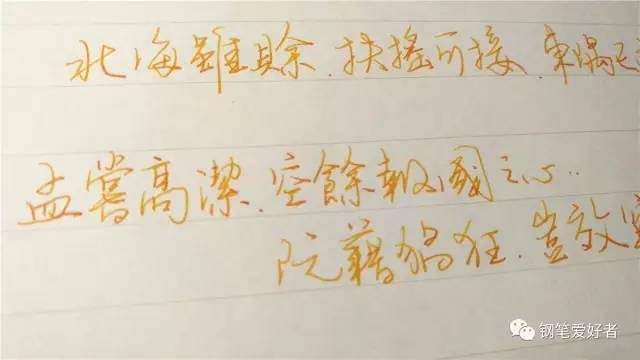 北海雖賒，扶搖可接，東隅已
孟嘗高潔，空餘報國之心..
阮籍猖狂，豈效窮
钢笔爱好者